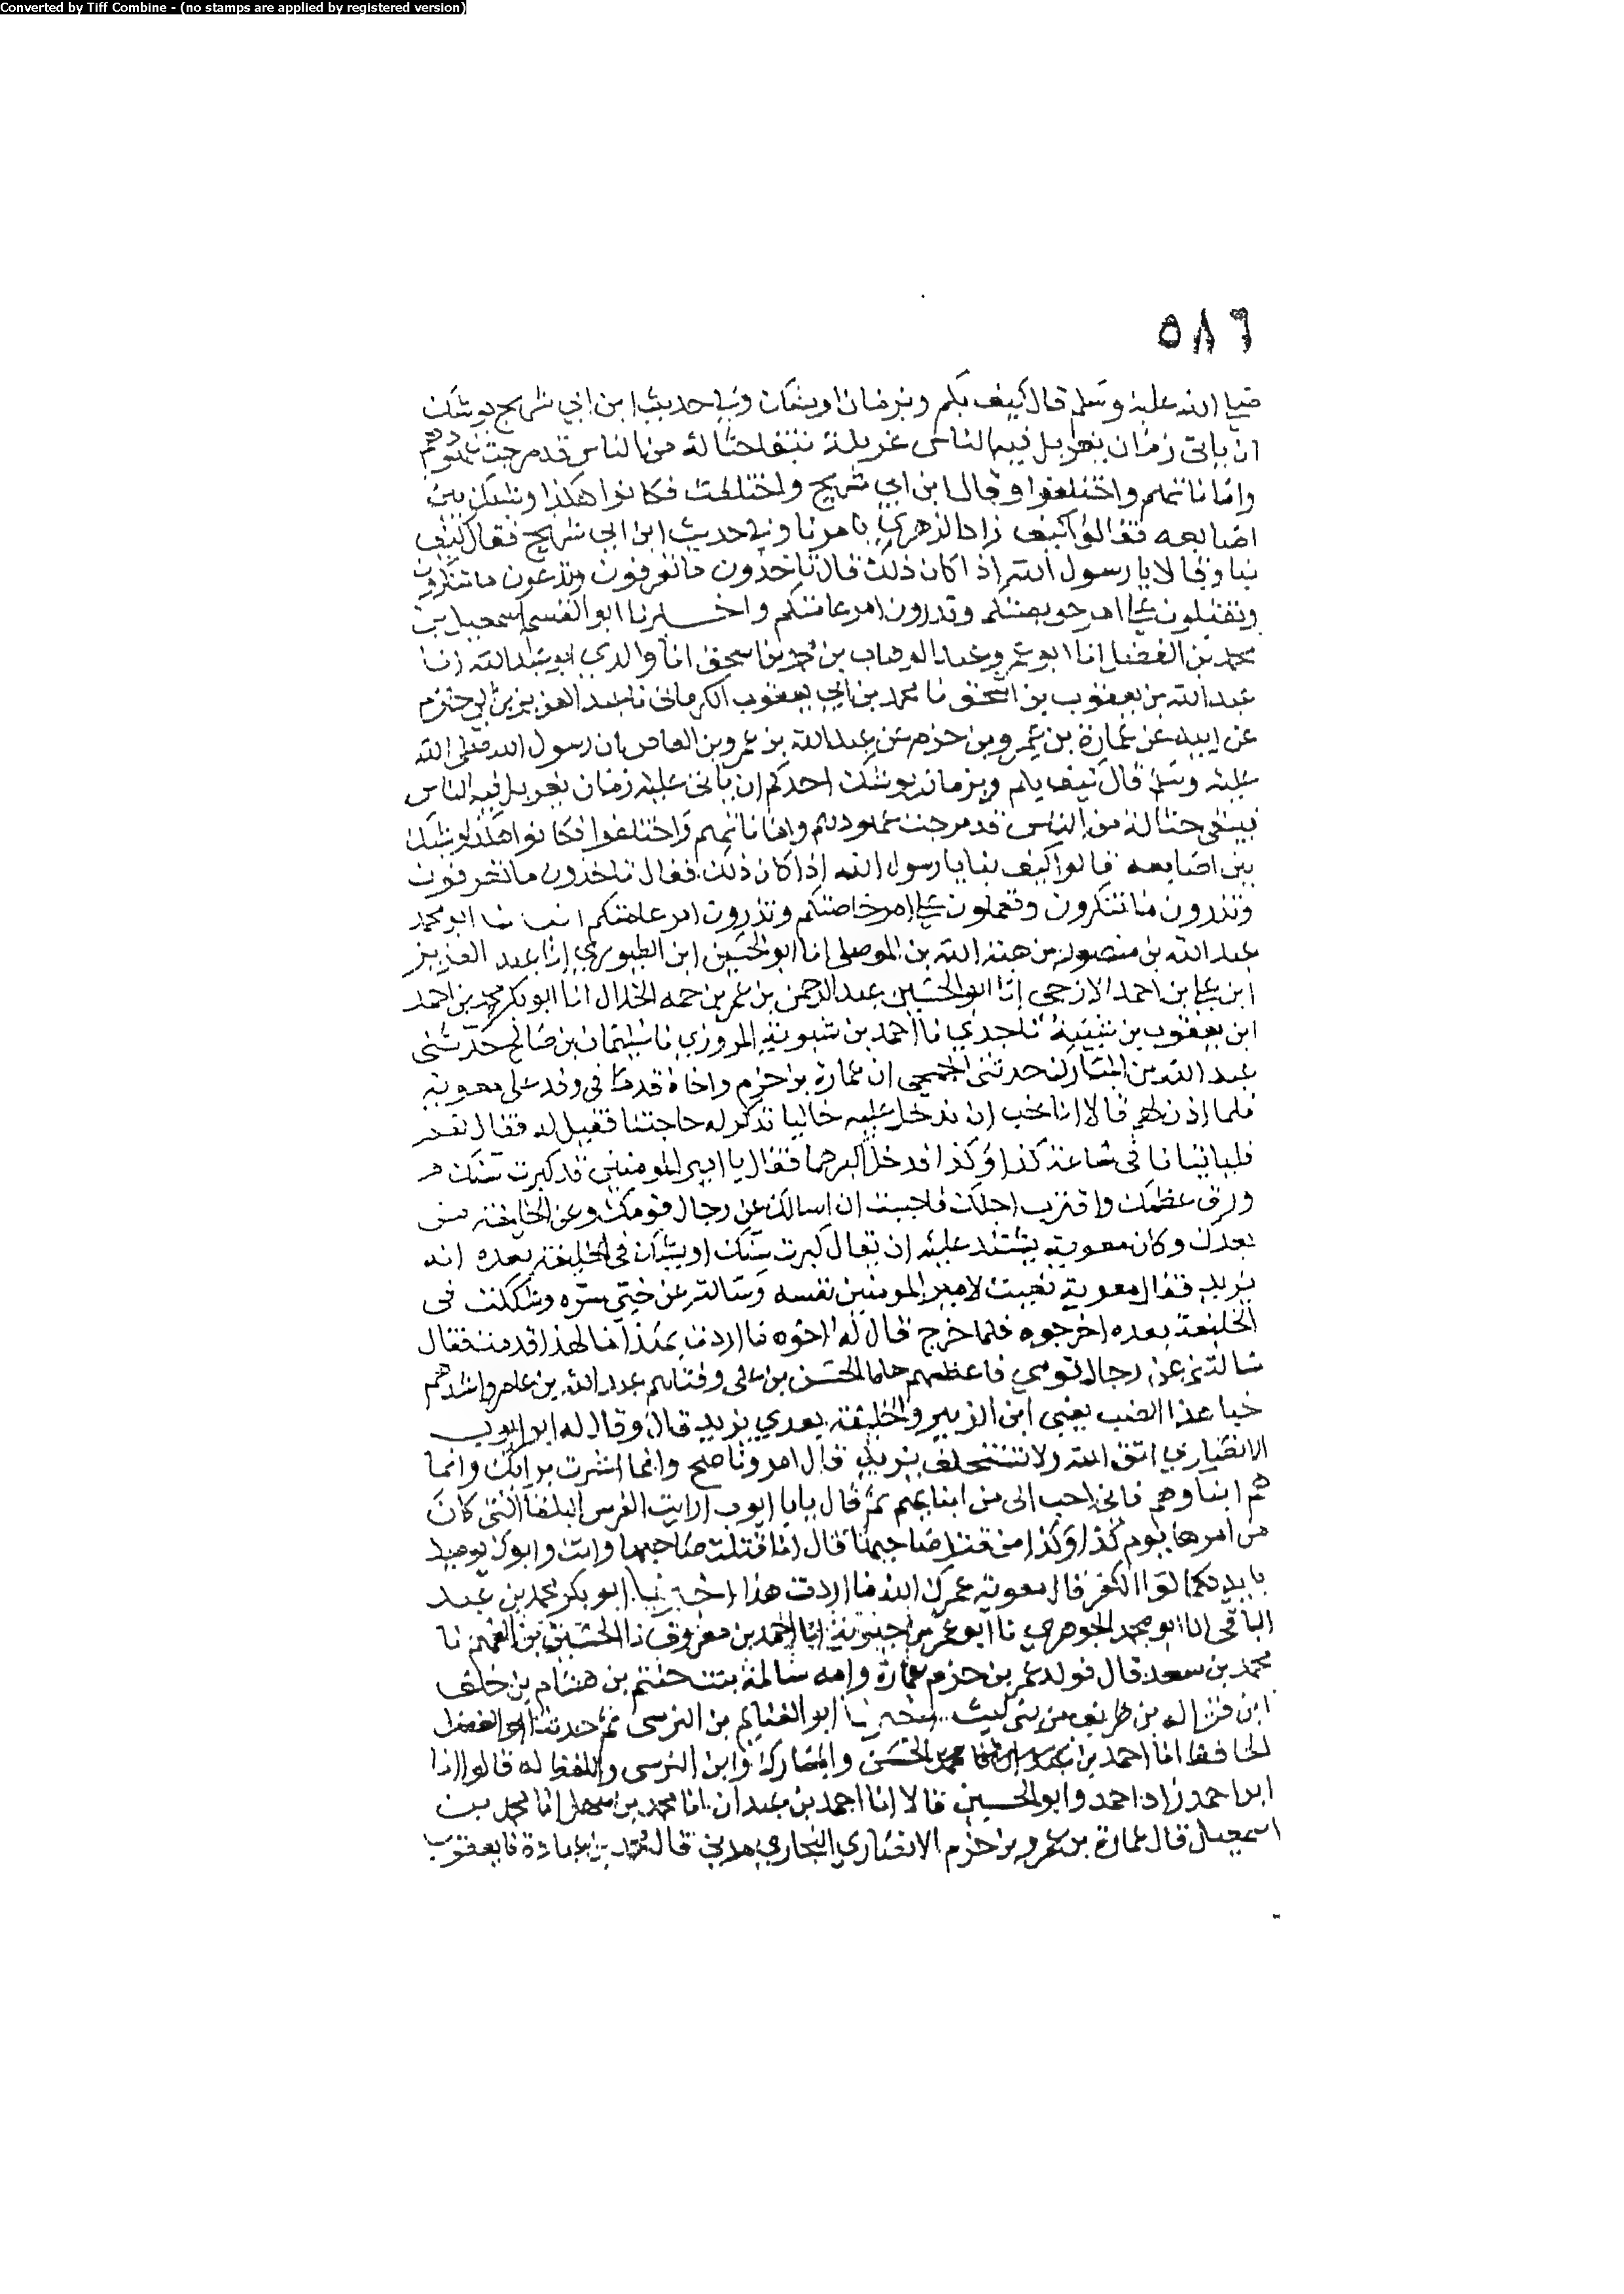 Converted by Tiff Combine - (no stamps are applied by registered version)
٥٨٦
صلى الله عليه وسلم قال كيف بكم وبزمان او يشك ان وفي حديث ابن ابي شريح يوشك
ان ياتي زمان يغربل فيه الناس غربلة تبقا حثالة من الناس قد مرجت عهودهم
واماناتهم واختلفوا وقال ابن ابي شريح واختلفت فكانوا هكذا وشبك بين
اصابعه فقالوا كيف زاد الزهري تامرنا وفي حديث ابن ابي شريح فقال كيف
بنا وقالا يا رسول الله اذا كان ذلك قال تاخذون ما تعرفون وتدعون ما تنكرون
وتقبلون على امر خويصتكم وتذرون امر عامتكم واخبرنا ابو القسم اسمعيل بن
محمد بن الفضل انا ابو عمرو عبد الوهاب بن محمد بن اسحق انا والدي ابو عبد الله انا
عبد الله بن يعقوب بن اسحق نا محمد بن ابي يعقوب الكرماني نا عبد العزيز بن ابي حازم
عن ابيه عن عمارة بن عمرو بن حزم عن عبد الله بن عمرو بن العاص ان رسول الله صلى الله
عليه وسلم قال كيف بكم وبزمان يوشك احدكم ان ياتي عليه زمان يغربل فيه الناس
فيبقى حثالة من الناس قد مرجت عهودهم واماناتهم واختلفوا فكانوا هكذا وشبك
بين اصابعه قالوا كيف بنا يا رسول الله اذا كان ذلك فقال تاخذون ما تعرفون
وتذرون ما تنكرون وتعملون على امر خاصتكم وتذرون امر عامتكم انبانا ابو محمد
عبد الله بن منصور بن هبة الله بن الموصلي انا ابو الحسين ابن الطيوري انا عبد العزيز
ابن علي بن احمد الازجي انا ابو الحسين عبد الرحمن بن عمر بن حمه الخلال انا ابو بكر محمد بن احمد
ابن يعقوب بن شيبة نا جدي نا احمد بن شبوية المروزي نا سليمان بن صالح حدثني
عبد الله بن المبارك حدثني الجمحي ان عمارة بن حزم واخاه قدما في وفد على معوية
فلما اذن لهم قالا انا نحب ان ندخل عليه خاليا نذكر له حاجتنا فقيل له فقال نعم
فلياتيانا في ساعة كذا وكذا فدخل اكبرهما فقال يا امير المومنين قد كبرت سنك
ورق عظمك واقترب اجلك فاحببت ان اسالك عن رجال قومك وعن الخليفة من
بعدك وكان معوية يشتد عليه ان يقال كبرت سنك او يشك في الخليفة بعده انه
يزيد فقال معوية نعيت لامير المومنين نفسه وسالته عن خبي سره وشككت في
الخليفة بعده اخرجوه فلما خرج قال له اخوه ما اردت بهذا اما لهذا قدمت فقال
سالتني عن رجال قومي فاعظمهم حلما الحسن بن علي وفتاهم عبد الله بن عامر واشدهم
خبا هذا الضب يعني ابن الزبير والخليفة بعدي يزيد قال وقال له ابو ايوب
الانصاري اتق الله ولا تستخلف يزيد قال امرو ناصح وانما اشرت برايك وانما
هم ابنا وهم فابني احب الي من ابنايهم ثم قال يابا ايوب ارايت الفرس البلقا التي كان
من امرها يوم كذا وكذا من قتل صاحبها قال انا قتلت صاحبها وانت وابوك يوميذ
بايديكما لوا الكفر قال معوية عمرك الله ما اردت هذا اخبرنا ابو بكر محمد بن عبد
الباقي انا ابو محمد الجوهري نا ابو عمر بن حيوية انا احمد بن معروف نا الحسين بن الفهم نا
محمد بن سعد قال فولد عمر بن حزم عمارة وامه سالمة بنت حنتم بن هشام بن خلف
ابن قزاله بن طريف من بني ليث اخبرنا ابو الغنايم بن النرسي ثم حدثنا ابو الفضل
الحافظ انا احمد بن الحسن والمبارك وابن النرسي واللفظ له قالوا انا
ابو احمد زاد احمد وابو الحسين قالا انا احمد بن عبدان انا محمد بن سهل انا محمد بن
اسمعيل قال عمارة بن عمرو بن حزم الانصاري النجاري مدني قال محمد بن عبادة نا يعقوب